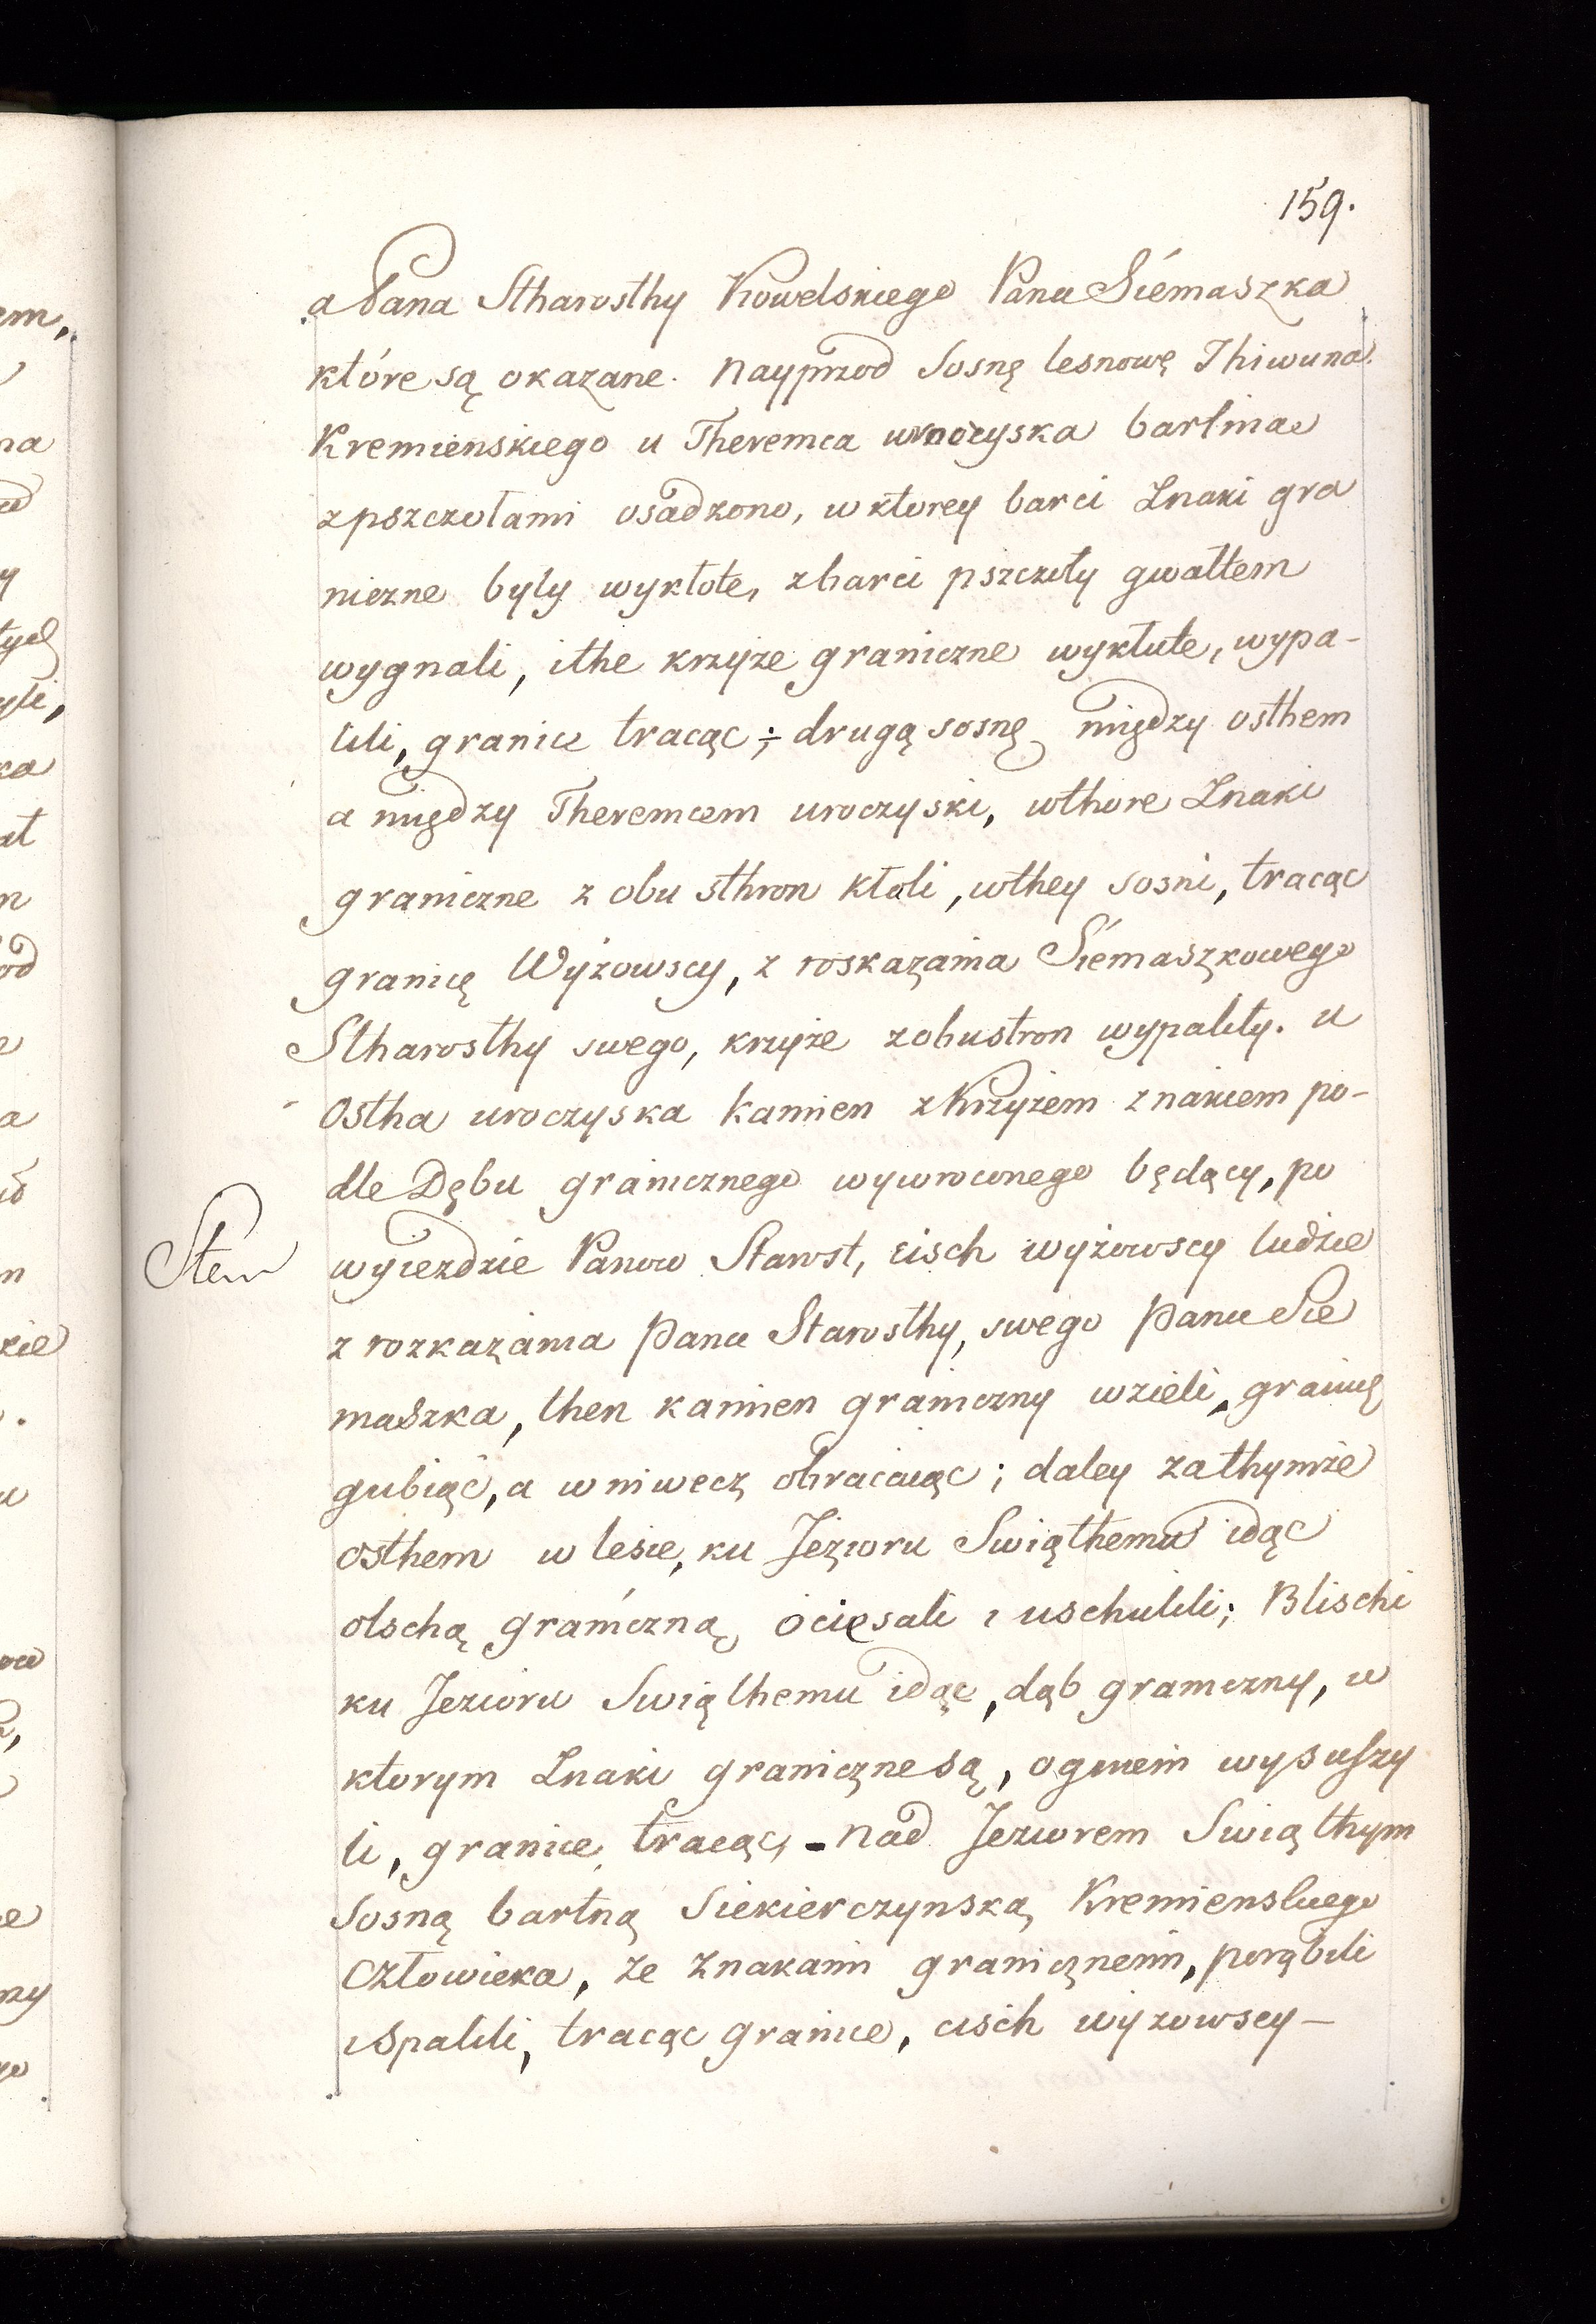 159.
a Pana Stharosthy Kowelskiego Pana Siémaszka
które są okazane. Nayprzod Sosnę lesnowę Thiwuna
Kremienskiego u Theremca uroczyska bartna
z pszczołami osadzono, w ktorey barci Znaki gra
niczne były wykłote, z barci pszczoły gwałtem
wygnali, i the krzyże graniczne wykłute, wypa-
lili, granice tracąc; drugą sosnę między osthem
a między Theremcem uroczyski, wthore Znaki
graniczne z obu sthron kłoli, wthey sosni, tracąc
granicę Wyżowscy, z roskazania Siémaszkowego
Stharosthy swego, krzyże z obustron wypality. u
Ostha uroczyska kamien z Krzyżem znakiem po-
dle Dębu granicznego wywroconego będący, po
Stem
wyiezdzie Panow Starost, cisch wyżowscy ludzie
z rozkazania pana Starosthy, swego pana Sie
maszka, then kamien graniczny wzieli, granicę
gubiąc, a w niwecz obracaiąc; daley za thymże
osthem w lesie, ku Jezioru Swiąthemu idąc
olschą graniczną ociesali i uschulili; Blischi
ku Jezioru Swiąthemu idąc, dąb graniczny, w
ktorym Znaki graniczne są, ogniem wysuszy
li, granice tracąc, - nad Jeziorem Swiąthym
Sosną bartną Siekierczynską Kremienskiego
Człowieka, ze znakami granicznemi, porąbili
i spalili, tracąc granice, cisch wyzowscy-